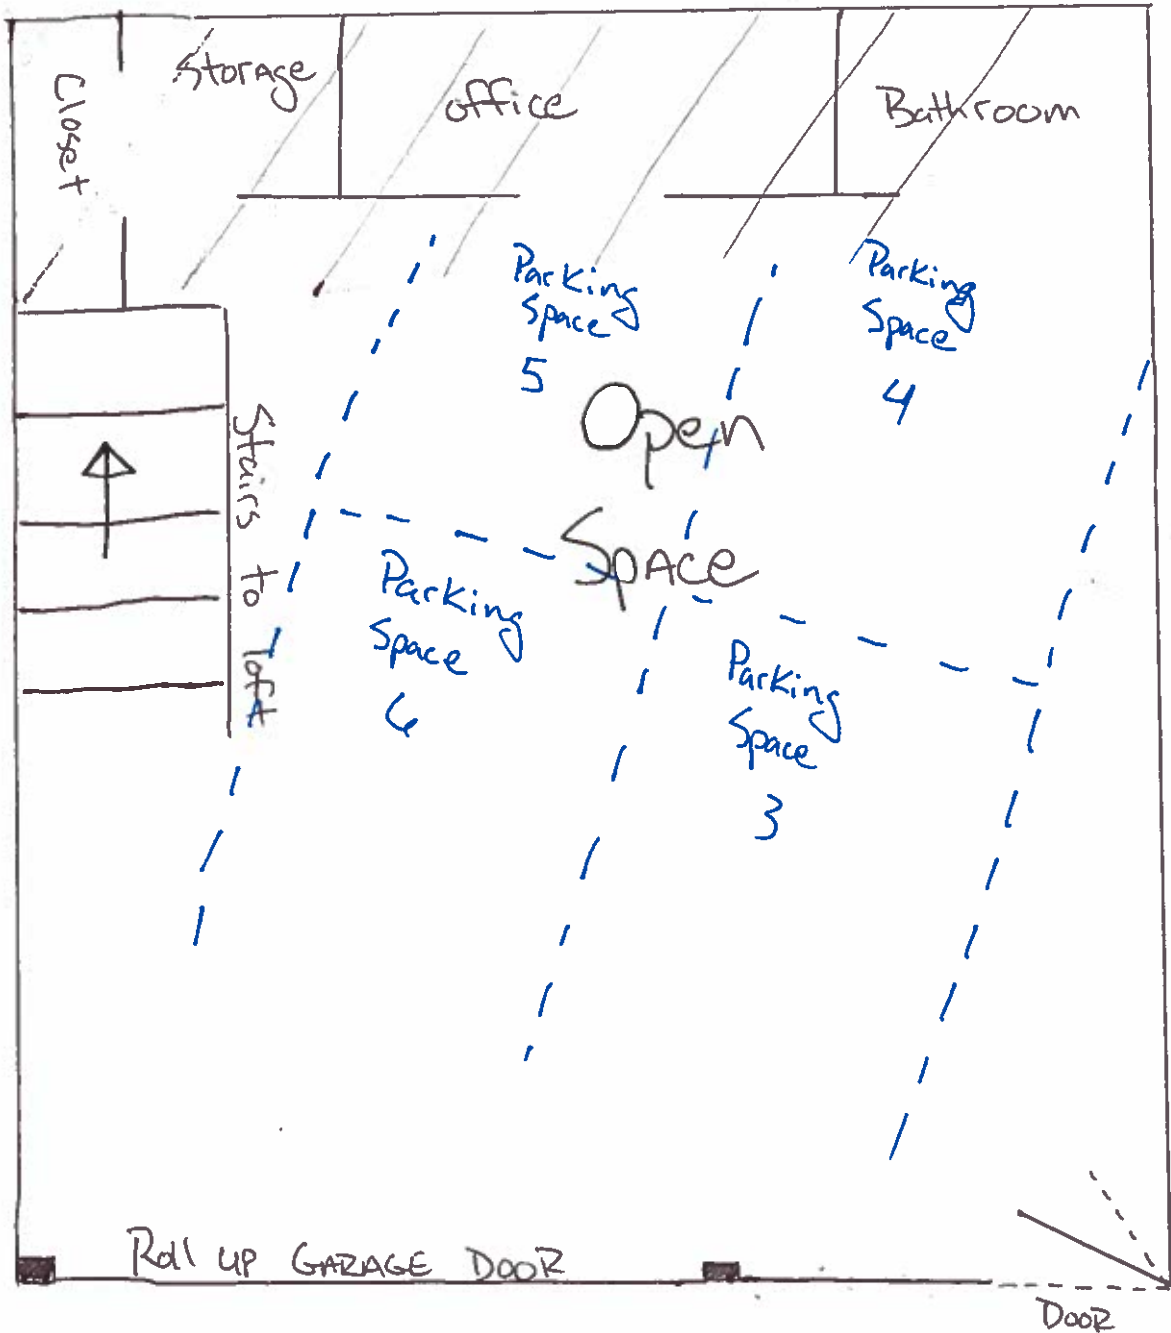 Closet
Storage
office
Bathroom
Parking
Space
5
Parking
Space
4
Open
Space
Stairs to loft
Parking
Space
6
Parking
Space
3
Roll UP GARAGE DOOR
DOOR